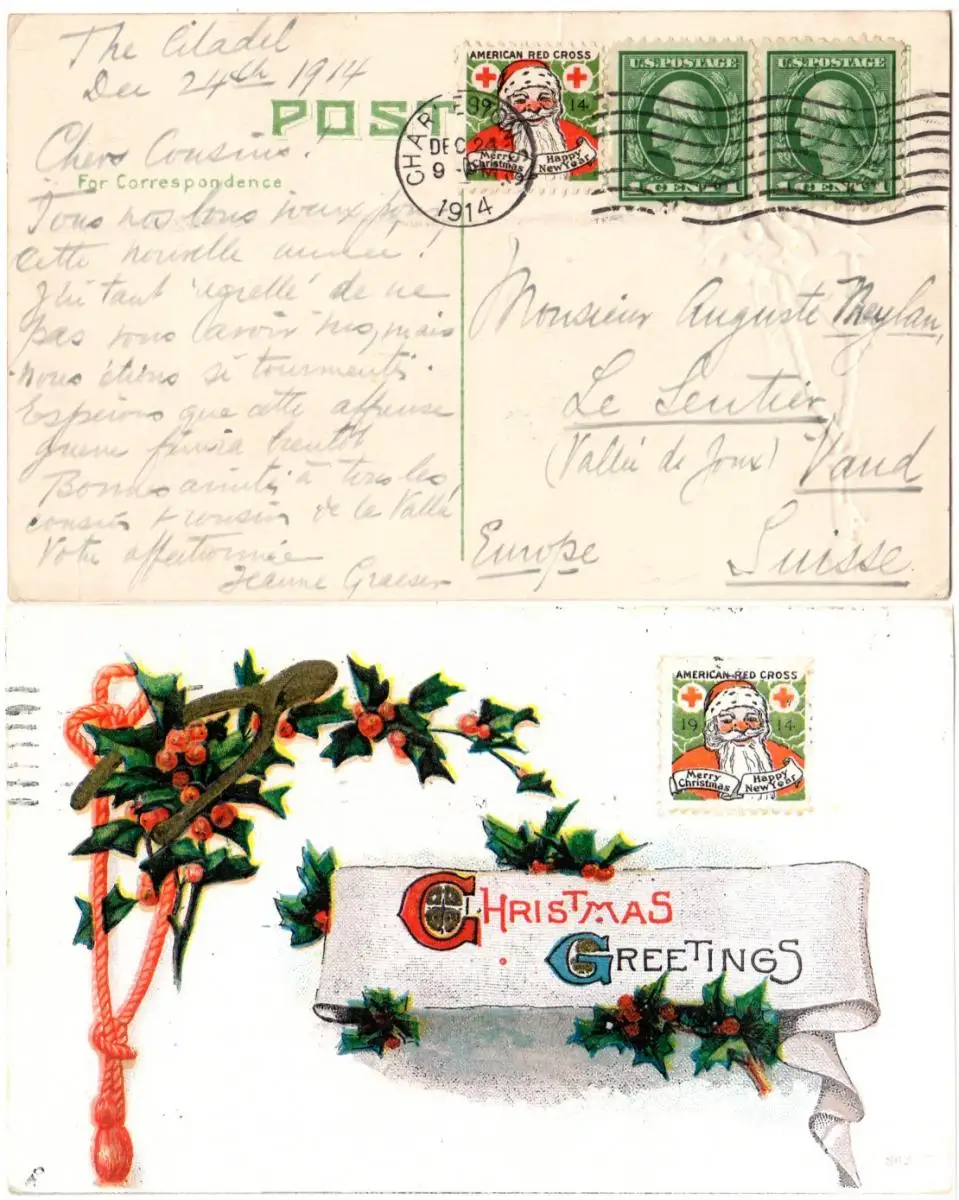 The Citadel
Dec 24th 1914
POST
Chers Cousins!
For Correspondence
Tous nos bons voeux pour
cette nouvelle année!
J'ai tant regretté de ne
pas vous avoir vus, mais
nous étions si tourmentés.
Espérons que cette affreuse
guerre finira bientôt
Bonnes amitiés à tous les
cousins + cousines de la Vallée
Votre affectionnée
Jeanne Graeser
AMERICAN RED CROSS
19 14
Merry Christmas
Happy New Year
CHAR
DEC 24
9
1914
U.S. POSTAGE
1 CENT 1
U.S. POSTAGE
1 CENT 1
Monsieur Auguste Meylan,
Le Sentier
(Vallée de Joux) Vaud
Europe Suisse
AMERICAN RED CROSS
19 14
Merry Christmas
Happy New Year
CHRISTMAS
GREETINGS